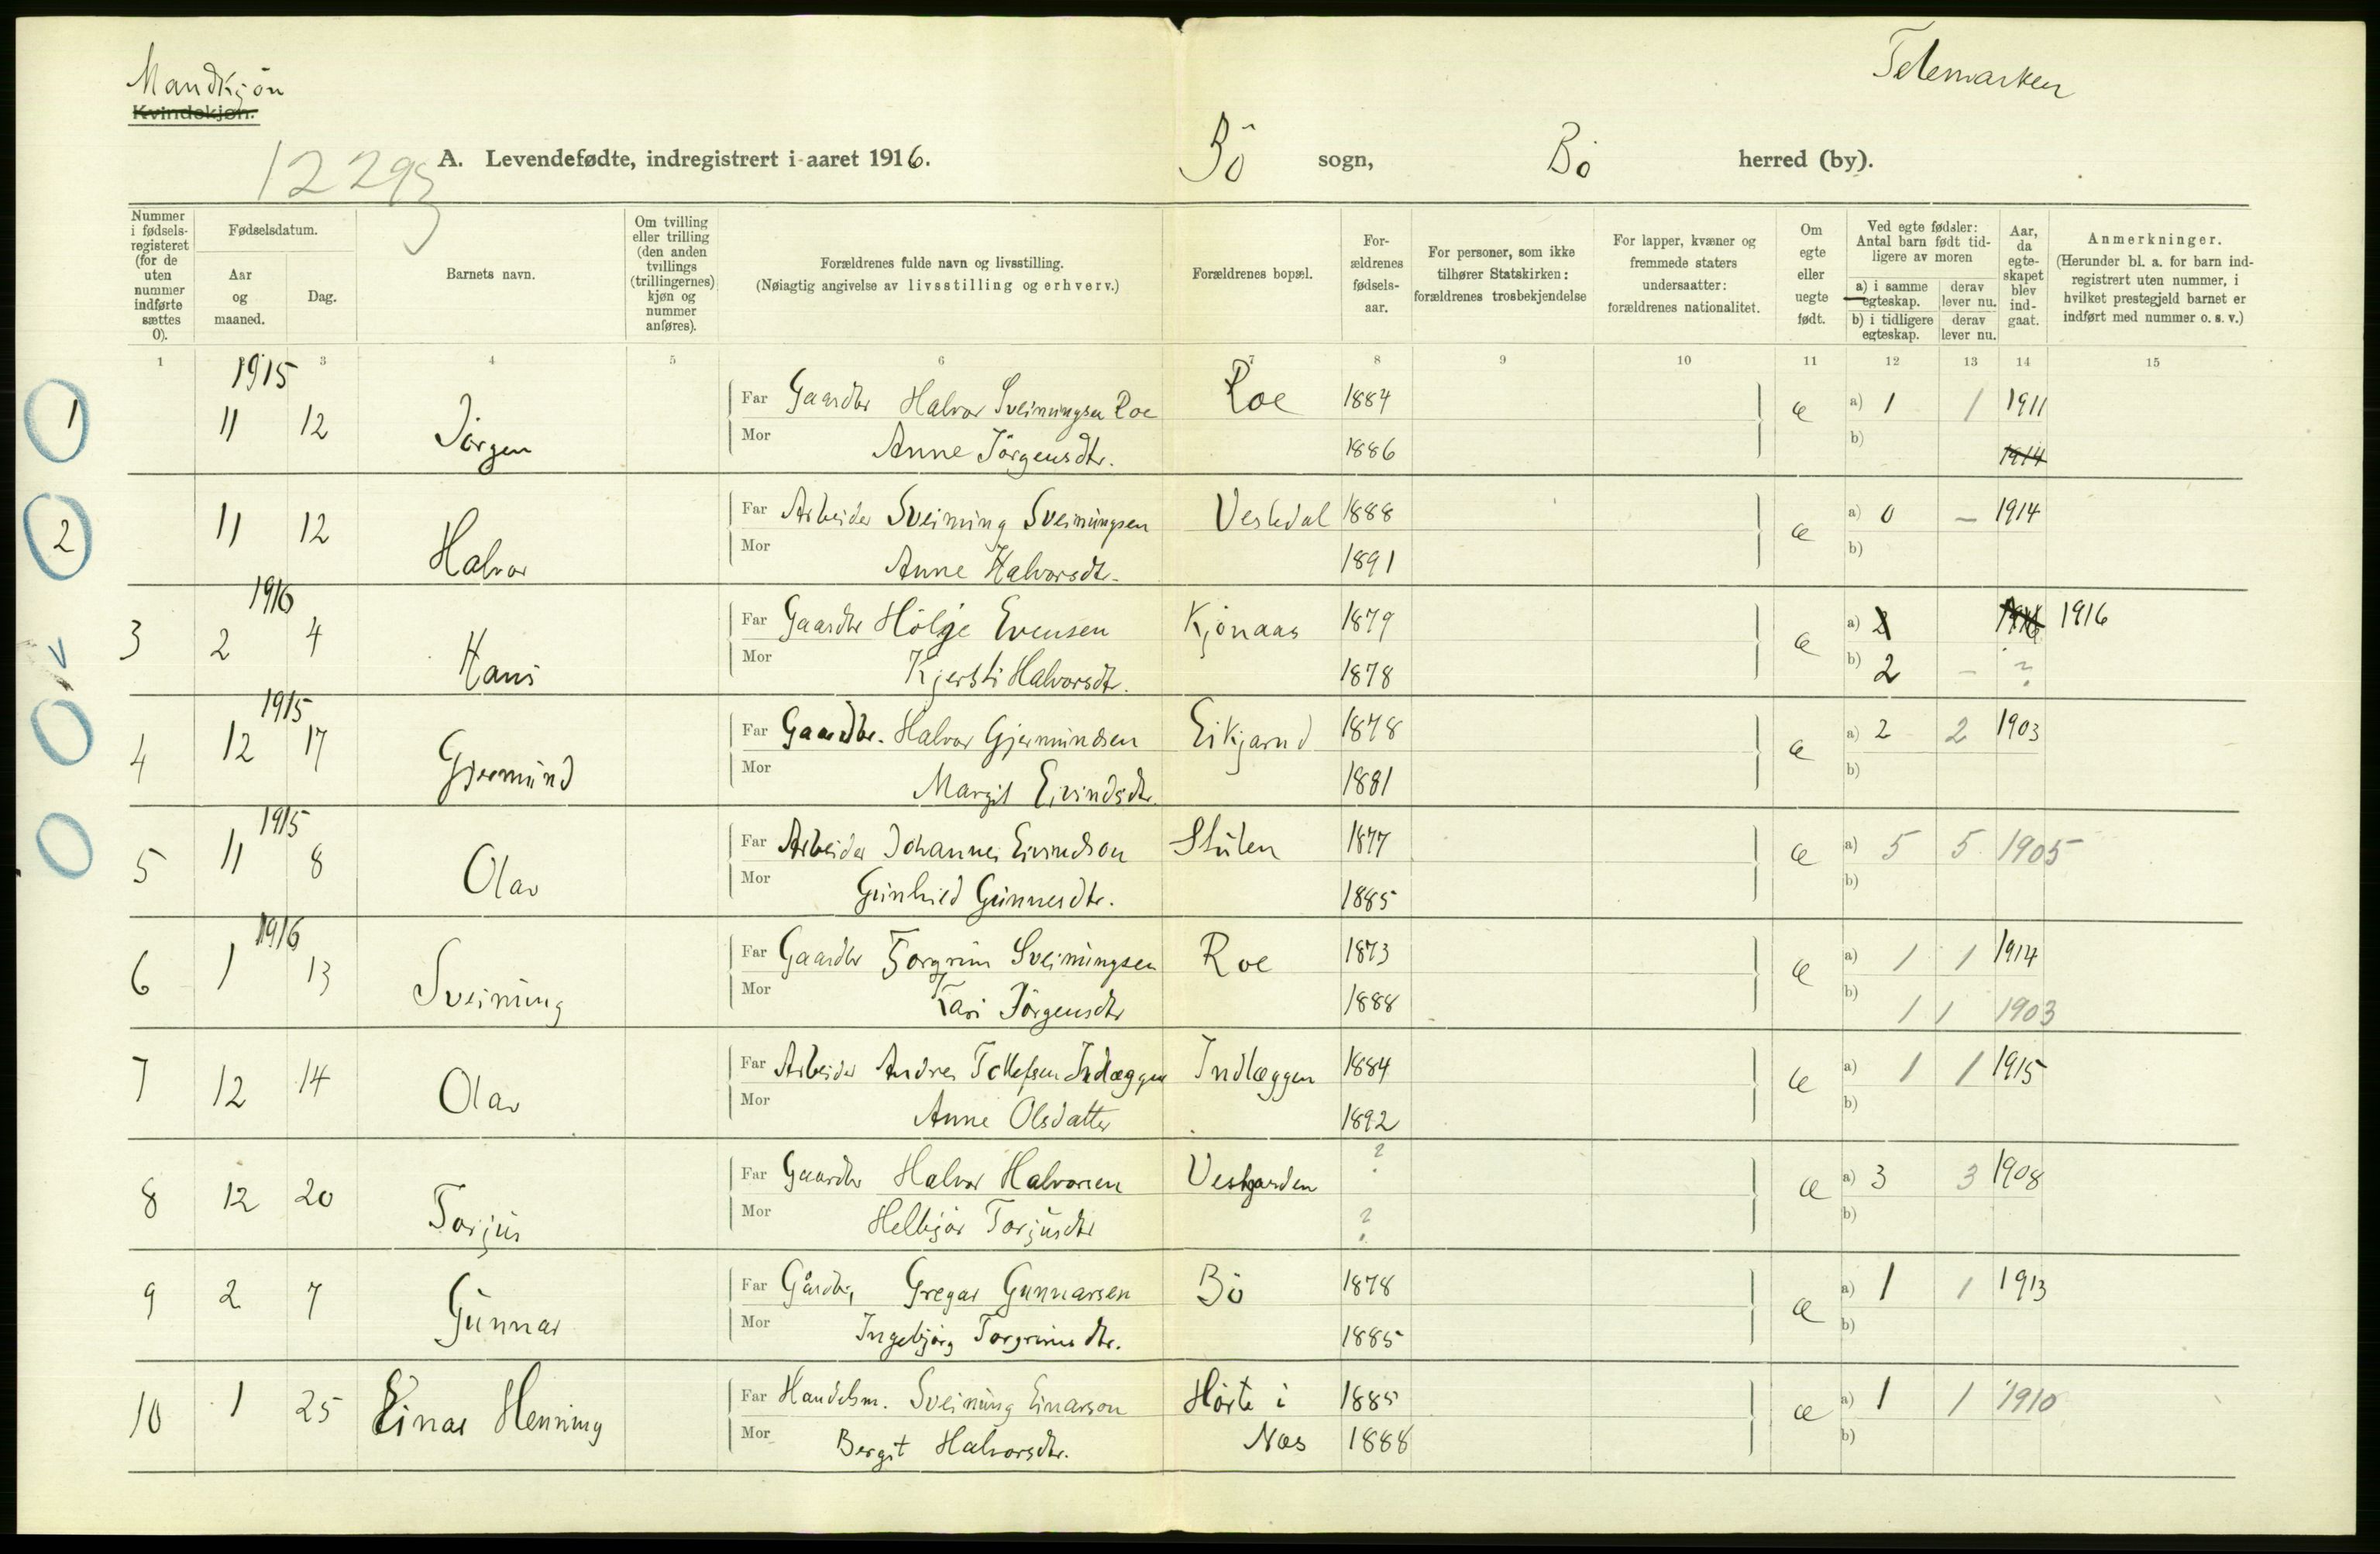 Mandkjön
Kvindekjøn.
Telemarken
12293
A. Levendefødte, indregistrert i aaret 1916.
Bö sogn, Bö herred (by).
Nummer i fødselsregisteret (for de uten nummer indførte sættes 0).
Fødselsdatum.
Aar og maaned.
Dag.
Barnets navn.
Om tvilling eller trilling (den anden tvillings (trillingernes) kjøn og nummer anføres).
Forældrenes fulde navn og livsstilling.
(Nøiagtig angivelse av livsstilling og erhverv.)
Forældrenes bopæl.
Forældrenes fødselsaar.
For personer, som ikke tilhører Statskirken: forældrenes trosbekjendelse
For lapper, kvæner og fremmede staters undersaatter: forældrenes nationalitet.
Om egte eller uegte født.
Ved egte fødsler: Antal barn født tidligere av moren
a) i samme egteskap.
derav lever nu.
b) i tidligere egteskap.
derav lever nu.
Aar, da egteskapet blev indgaat.
Anmerkninger.
(Herunder bl. a. for barn indregistrert uten nummer, i hvilket prestegjeld barnet er indført med nummer o. s. v.)
1 3 4 5 6 7 8 9 10 11 12 13 14 15
1915
1 11 12 Jörgen Far Gaardbr Halvor Sveinungsen Roe Roe 1884 e a) 1 1 1911
Mor Anne Jörgensdtr. 1886 b) 1914
2 11 12 Halvor Far Arbeider Sveinung Sveinungsen Vesledal 1888 e a) 0 – 1914
Mor Anne Halvorsdtr. 1891 b)
1916
3 2 4 Hans Far Gaardbr Hölje Evensen Kjönaas 1879 e a) 2 1916 1916
Mor Kjersti Halvorsdtr. 1878 b) 2 – ?
1915
4 12 17 Gjermund Far Gaardbr. Halvor Gjermundsen Eikjarud 1878 e a) 2 2 1903
Mor Margit Eivindsdtr. 1881 b)
1915
5 11 8 Olav Far Arbeider Johannes Eivindson 1877 e a) 5 5 1905
Mor Gunhild Gunnesdtr. 1885 b)
1916
6 1 13 Sveinung Far Gaardbr Torgrim Sveinungsen Roe 1873 e a) 1 1 1914
Mor Kari Jörgensdtr 1888 b) 1 1 1903
7 12 14 Olav Far Arbeider Andres Tollefsen Indlæggen Indlæggen 1884 e a) 1 1 1915
Mor Anne Olsdatter 1892 b)
8 12 20 Torjus Far Gaardbr Halvor Halvorsen Vestgarden ? e a) 3 3 1908
Mor Helbjör Torjusdtr ? b)
9 2 7 Gunnar Far Gårdbr, Gregar Gunnarsen Bö 1878 e a) 1 1 1913
Mor Ingebjörg Torgrimsdtr. 1885 b)
10 1 25 Einar Henning Far Handelsm. Sveinung Einarson Hörte i 1885 e a) 1 1 1910
Mor Bergit Halvorsdtr. Næs 1888 b)